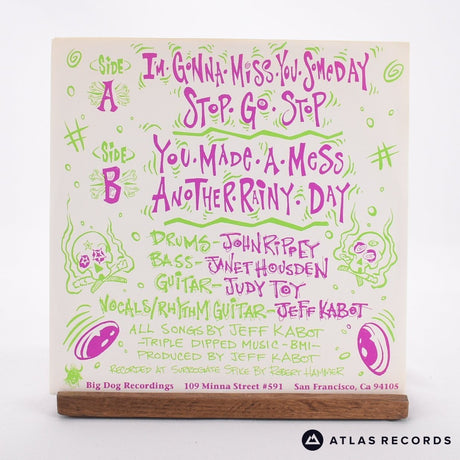 SIDE A
I'M·GONNA·MISS·YOU·SOMEDAY
STOP·GO·STOP
SIDE B
YOU·MADE·A·MESS
ANOTHER·RAINY·DAY
DRUMS-JOHN RIPPEY
BASS-JANET HOUSDEN
GUITAR-JUDY TOY
VOCALS/RHYTHM GUITAR-JEFF KABOT
ALL SONGS BY JEFF KABOT
-TRIPLE DIPPED MUSIC-BMI-
PRODUCED BY JEFF KABOT
RECORDED AT SURROGATE SPICE BY ROBERT HAMMER
Big Dog Recordings 109 Minna Street #591 San Francisco, Ca 94105
ATLAS RECORDS